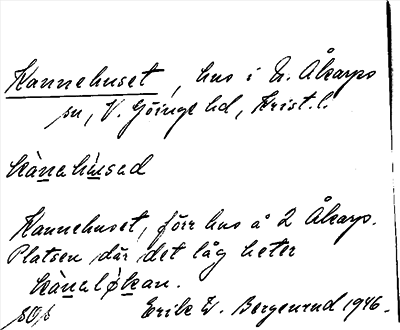 Kannehuset, hus i N. Åkarps
sn, V. Göinge hd, Krist. l.
kànahùsad
Kannehuset, förr hus å 2 Åkarp.
Platsen där det låg heter
kànaløkan.
Erik W. Bergenrud 1946.